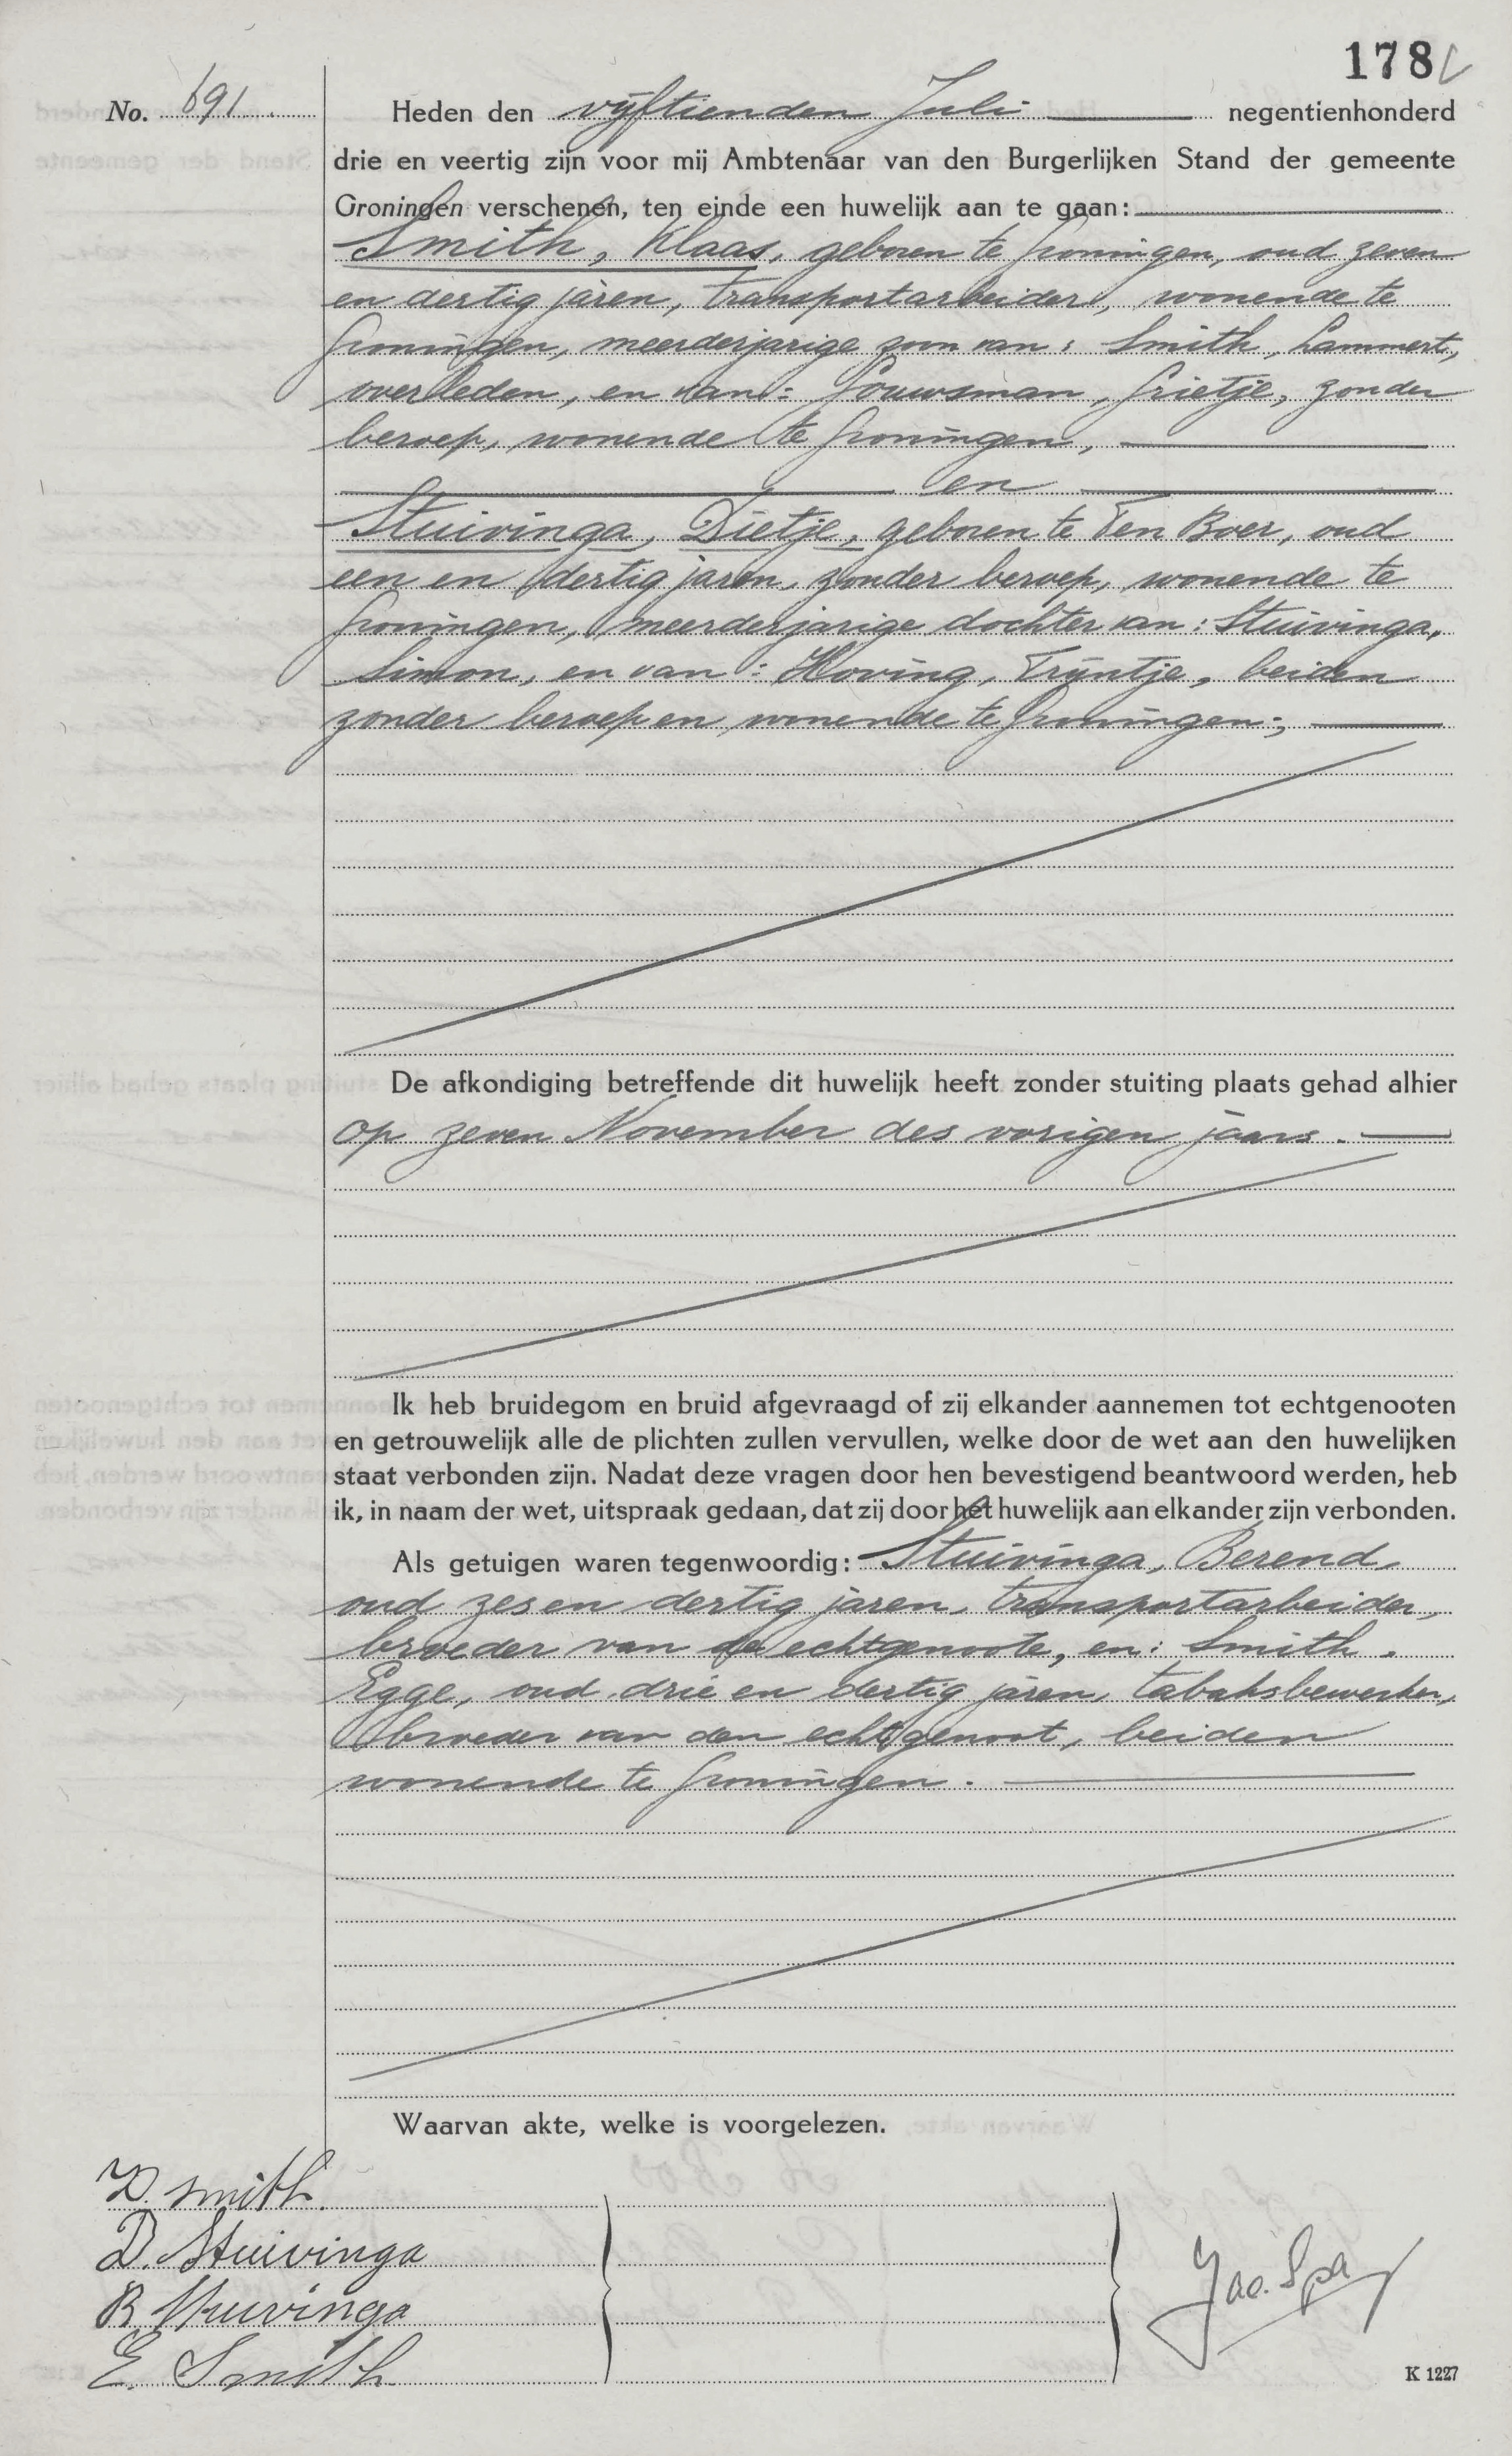 178
No. 691.
Heden den vijftienden Juli negentienhonderd
drie en veertig zijn voor mij Ambtenaar van den Burgerlijken Stand der gemeente
Groningen verschenen, ten einde een huwelijk aan te gaan:
Smith, Klaas, geboren te Groningen, oud zeven
en dertig jaren, transportarbeider, wonende te
Groningen, meerderjarige zoon van: Smith, Lammert,
overleden, en van: Gouwsman, Grietje, zonder
beroep, wonende te Groningen,
en
Stuivinga, Dietje, geboren te Ten Boer, oud
een en dertig jaren, zonder beroep, wonende te
Groningen, meerderjarige dochter van: Stuivinga,
Simon, en van: Hoving, Trijntje, beiden
zonder beroep en wonende te Groningen;
De afkondiging betreffende dit huwelijk heeft zonder stuiting plaats gehad alhier
op zeven November des vorigen jaars.
Ik heb bruidegom en bruid afgevraagd of zij elkander aannemen tot echtgenooten
en getrouwelijk alle de plichten zullen vervullen, welke door de wet aan den huwelijken
staat verbonden zijn. Nadat deze vragen door hen bevestigend beantwoord werden, heb
ik, in naam der wet, uitspraak gedaan, dat zij door het huwelijk aan elkander zijn verbonden.
Als getuigen waren tegenwoordig: Stuivinga, Berend,
oud zes en dertig jaren, transportarbeider,
broeder van de echtgenoote, en: Smith,
Egge, oud drie en dertig jaren, tabaksbewerker,
broeder van den echtgenoot, beiden
wonende te Groningen.
Waarvan akte, welke is voorgelezen.
smith.
D. Stuivinga
B Stuivinga
E. Smith
Jac. Spa
K 1227